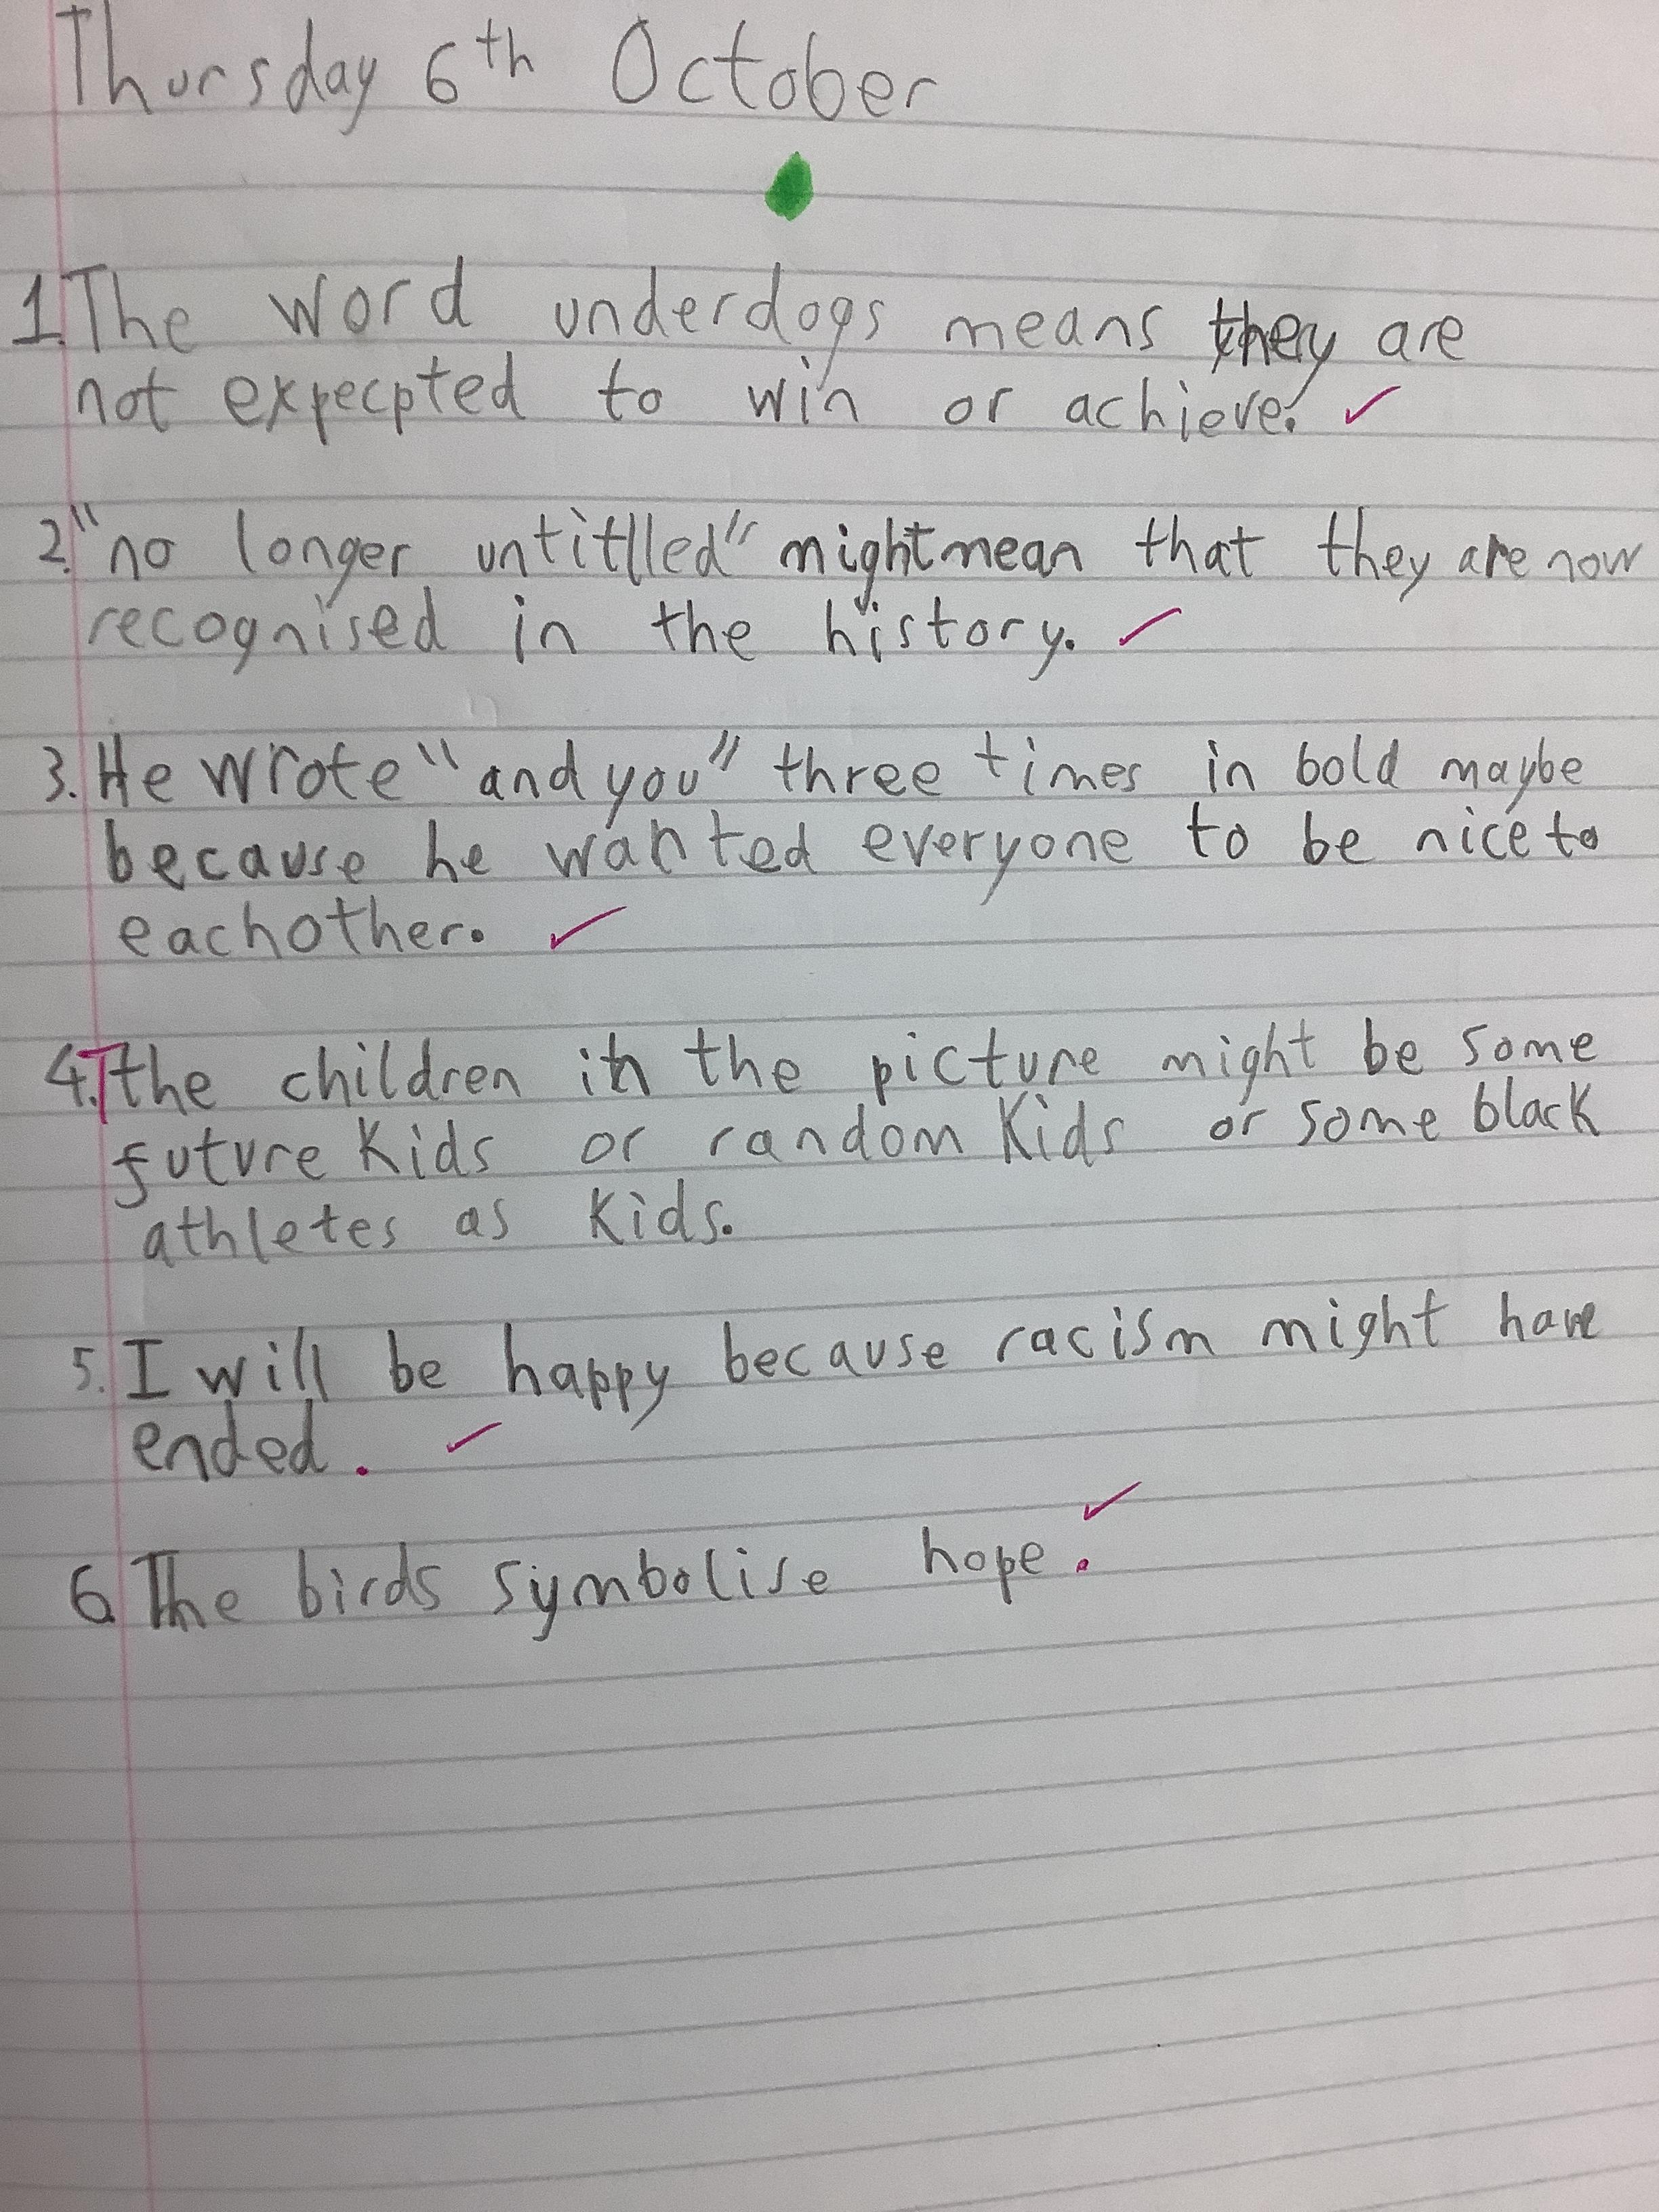 Thursday 6th October
1. The word underdogs means they are
not expecpted to win or achieve.
2. "no longer untitlled" might mean that they are now
recognised in the history.
3. He wrote "and you" three times in bold maybe
because he wanted everyone to be nice to
eachother.
4. The children in the picture might be some
future kids or random kids or some black
athletes as kids.
5. I will be happy because racism might have
ended.
6. The birds symbolise hope.